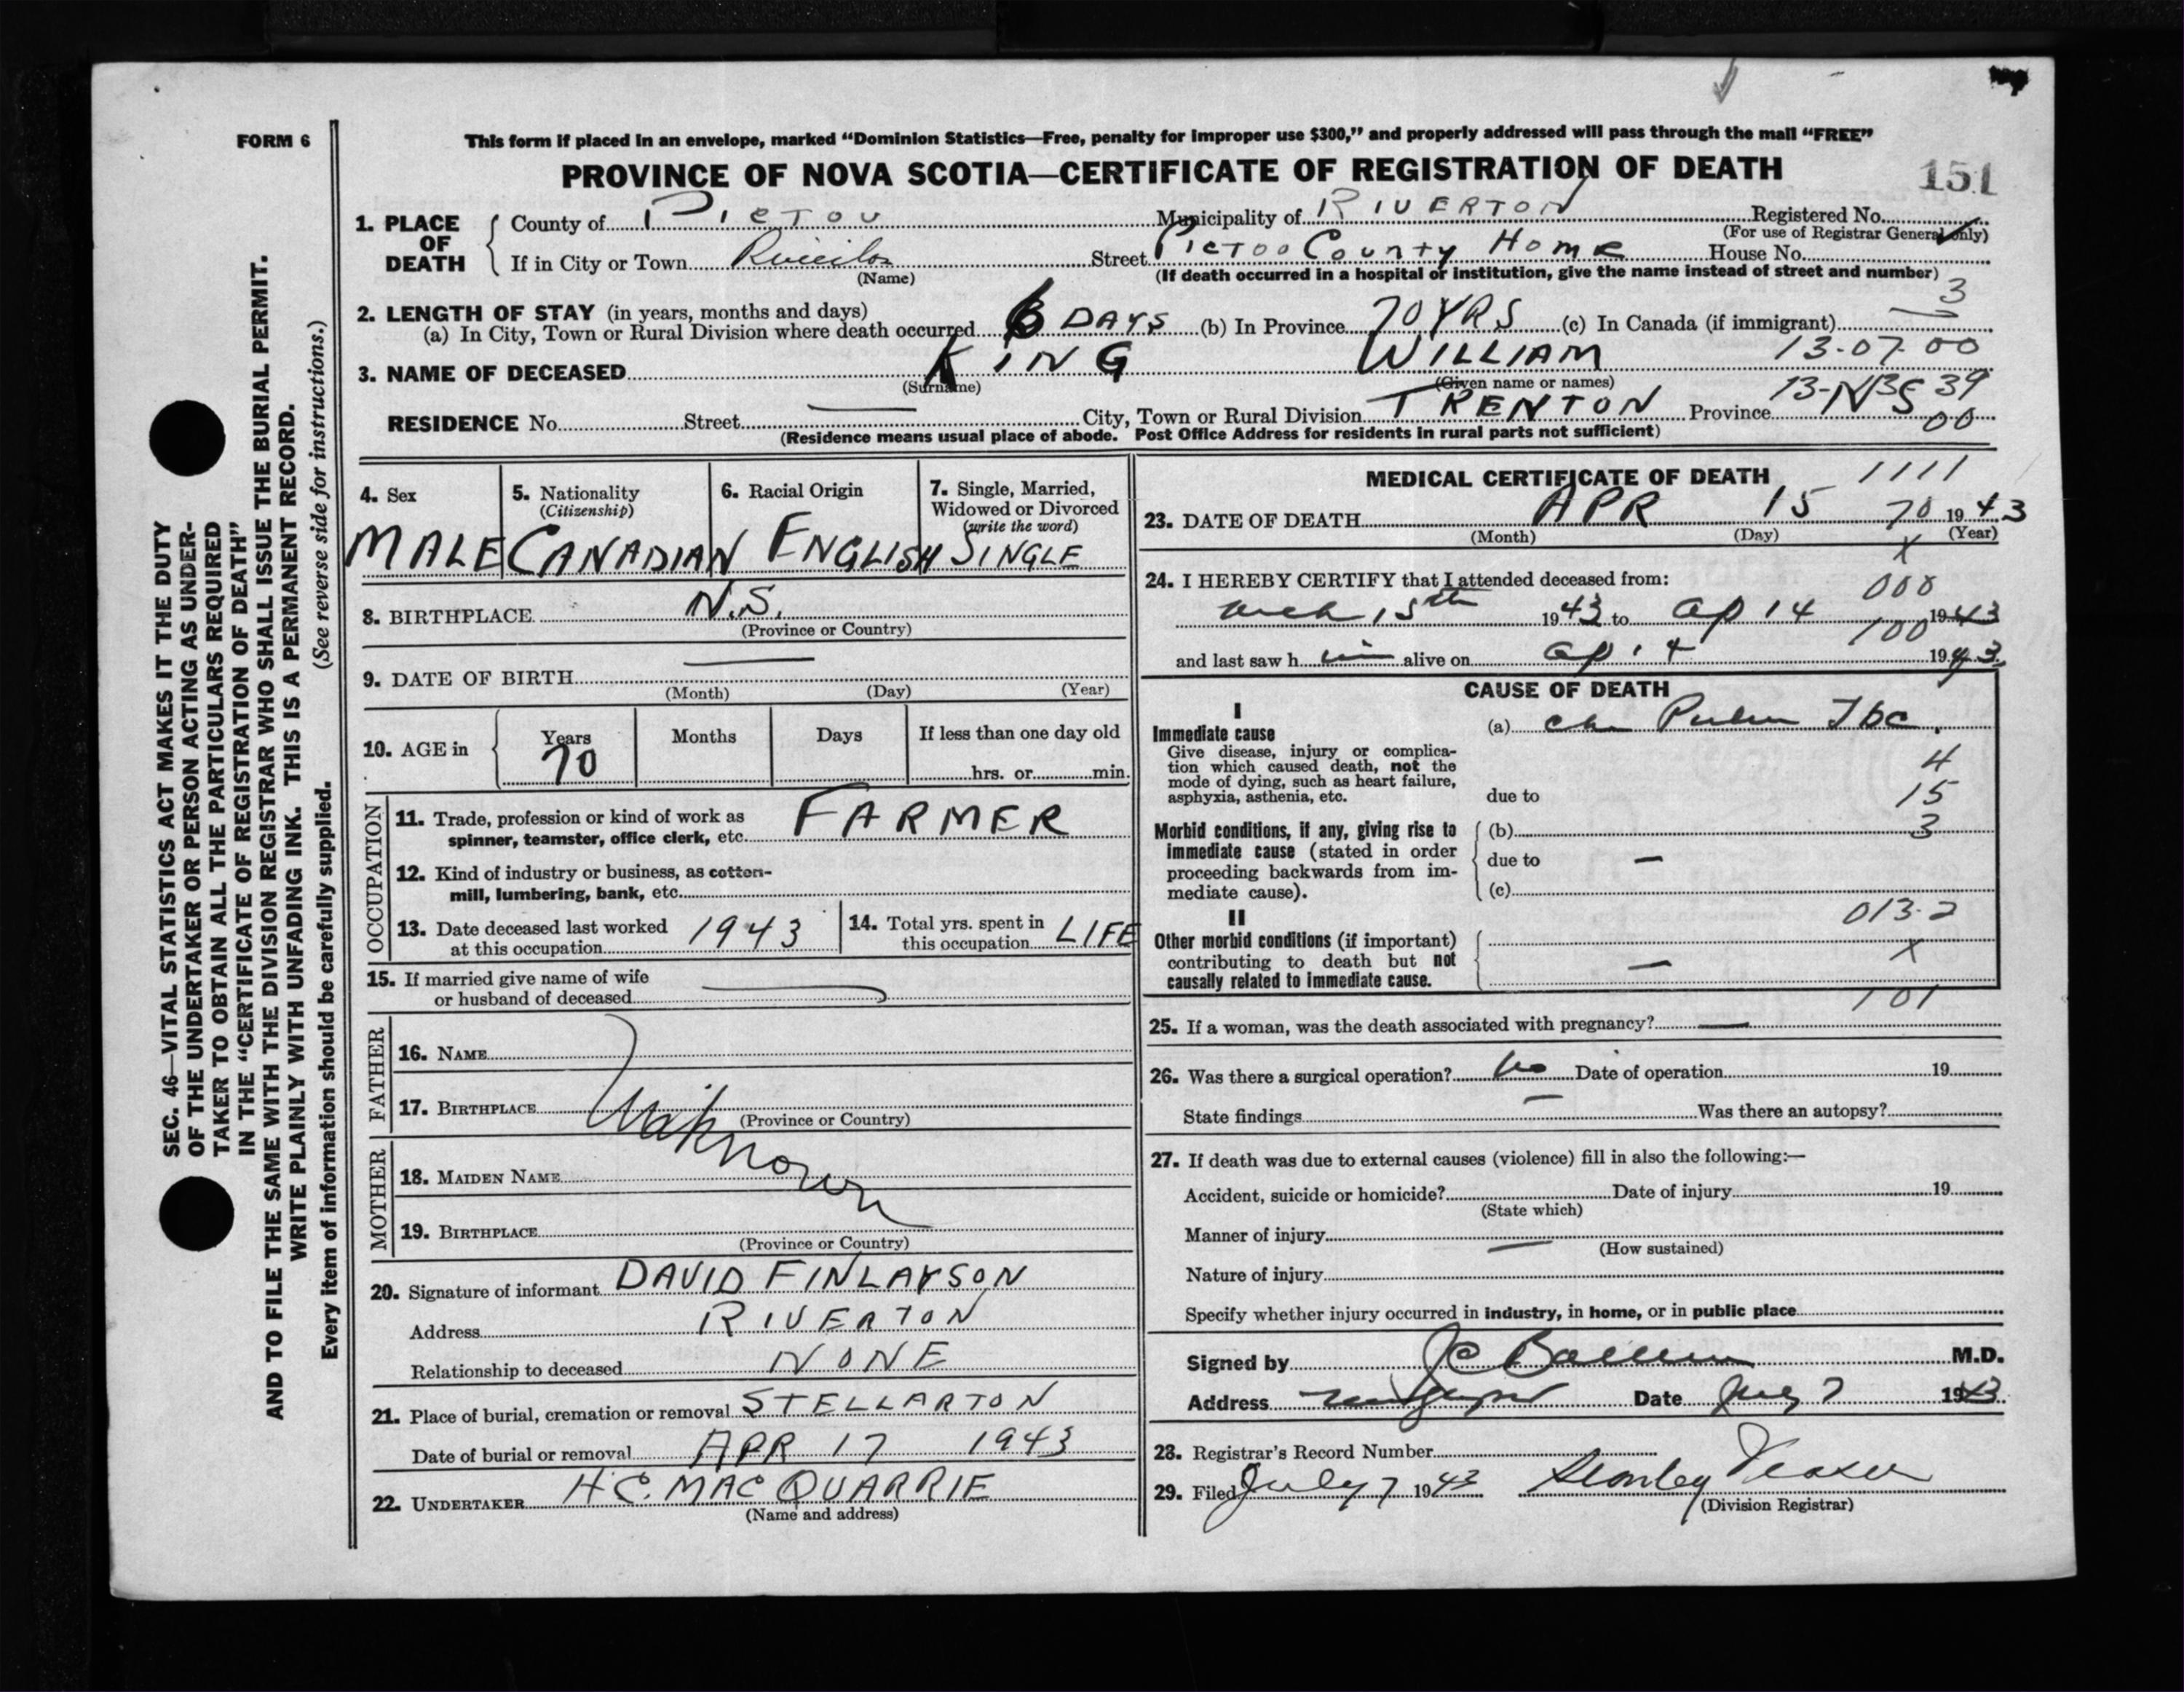 FORM 6
This form if placed in an envelope, marked “Dominion Statistics—Free, penalty for improper use $300,” and properly addressed will pass through the mail “FREE”
PROVINCE OF NOVA SCOTIA—CERTIFICATE OF REGISTRATION OF DEATH
151
1. PLACE OF DEATH
County of PICTOU Municipality of RIVERTON Registered No.
(For use of Registrar General only)
If in City or Town Street PICTOO COUNTY HOME House No.
(Name) (If death occurred in a hospital or institution, give the name instead of street and number)
2. LENGTH OF STAY (in years, months and days) 3
(a) In City, Town or Rural Division where death occurred 6 DAYS (b) In Province 70 YRS (c) In Canada (if immigrant)
3. NAME OF DECEASED KING WILLIAM 13-07-00
(Surname) (Given name or names)
13-NBS 39
RESIDENCE No. Street City, Town or Rural Division TRENTON Province 00
(Residence means usual place of abode. Post Office Address for residents in rural parts not sufficient)
4. Sex
MALE
5. Nationality
(Citizenship)
CANADIAN
6. Racial Origin
ENGLISH
7. Single, Married,
Widowed or Divorced
(write the word)
SINGLE
8. BIRTHPLACE N.S.
(Province or Country)
9. DATE OF BIRTH
(Month) (Day) (Year)
10. AGE in
Years Months Days If less than one day old
70 hrs. or min.
OCCUPATION
11. Trade, profession or kind of work as
spinner, teamster, office clerk, etc. FARMER
12. Kind of industry or business, as cotton-
mill, lumbering, bank, etc.
13. Date deceased last worked
at this occupation 1943
14. Total yrs. spent in
this occupation LIFE
15. If married give name of wife
or husband of deceased
FATHER
16. NAME
17. BIRTHPLACE
(Province or Country)
Unknown
MOTHER
18. MAIDEN NAME
19. BIRTHPLACE
(Province or Country)
20. Signature of informant DAVID FINLAYSON
Address RIVERTON
Relationship to deceased NONE
21. Place of burial, cremation or removal STELLARTON
Date of burial or removal APR 17 1943
22. UNDERTAKER H C. MACQUARRIE
(Name and address)
MEDICAL CERTIFICATE OF DEATH 1111
23. DATE OF DEATH APR 15 70 1943
(Month) (Day) (Year)
X
24. I HEREBY CERTIFY that I attended deceased from:
000
15th 1943 to Ap 14 1943
100
and last saw him alive on Ap 14 1943
CAUSE OF DEATH
I
Immediate cause
Give disease, injury or complica-
tion which caused death, not the
mode of dying, such as heart failure,
asphyxia, asthenia, etc.
(a) Chr Pulm Tbc.
4
due to 15
Morbid conditions, if any, giving rise to
immediate cause (stated in order
proceeding backwards from im-
mediate cause).
(b) 3
due to —
(c)
013-2
II
Other morbid conditions (if important)
contributing to death but not
causally related to immediate cause.
— X
101
25. If a woman, was the death associated with pregnancy? —
26. Was there a surgical operation? No Date of operation 19
State findings — Was there an autopsy?
27. If death was due to external causes (violence) fill in also the following:—
Accident, suicide or homicide? Date of injury 19
(State which)
Manner of injury
(How sustained)
Nature of injury
Specify whether injury occurred in industry, in home, or in public place
Signed by J C M.D.
Address Date July 7 1943
28. Registrar's Record Number
29. Filed July 7 1943 Stanley Fraser
(Division Registrar)
SEC. 46—VITAL STATISTICS ACT MAKES IT THE DUTY
OF THE UNDERTAKER OR PERSON ACTING AS UNDER-
TAKER TO OBTAIN ALL THE PARTICULARS REQUIRED
IN THE “CERTIFICATE OF REGISTRATION OF DEATH”
AND TO FILE THE SAME WITH THE DIVISION REGISTRAR WHO SHALL ISSUE THE BURIAL PERMIT.
WRITE PLAINLY WITH UNFADING INK. THIS IS A PERMANENT RECORD.
Every item of information should be carefully supplied. (See reverse side for instructions.)